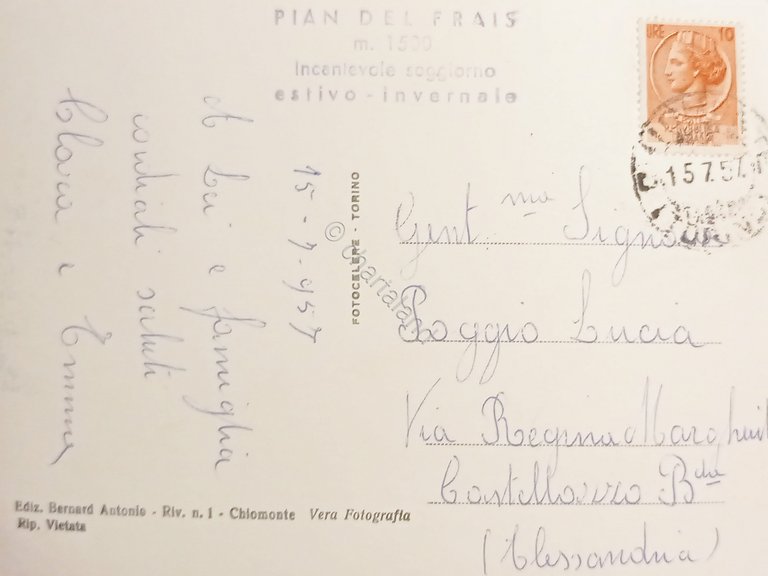 PIAN DEL FRAIS
m. 1500
Incantevole soggiorno
estivo - invernale
LIRE 10
15 7 57
15 - 7 - 957
A Lei e famiglia
cordiali saluti
Clara e Emma
FOTOCELERE - TORINO
© Chartaland
Gent.ma Signora
Poggio Lucia
Via Regina Margherit
Castellazzo B.da
(Alessandria)
Ediz. Bernard Antonio - Riv. n. 1 - Chiomonte Vera Fotografia
Rip. Vietata